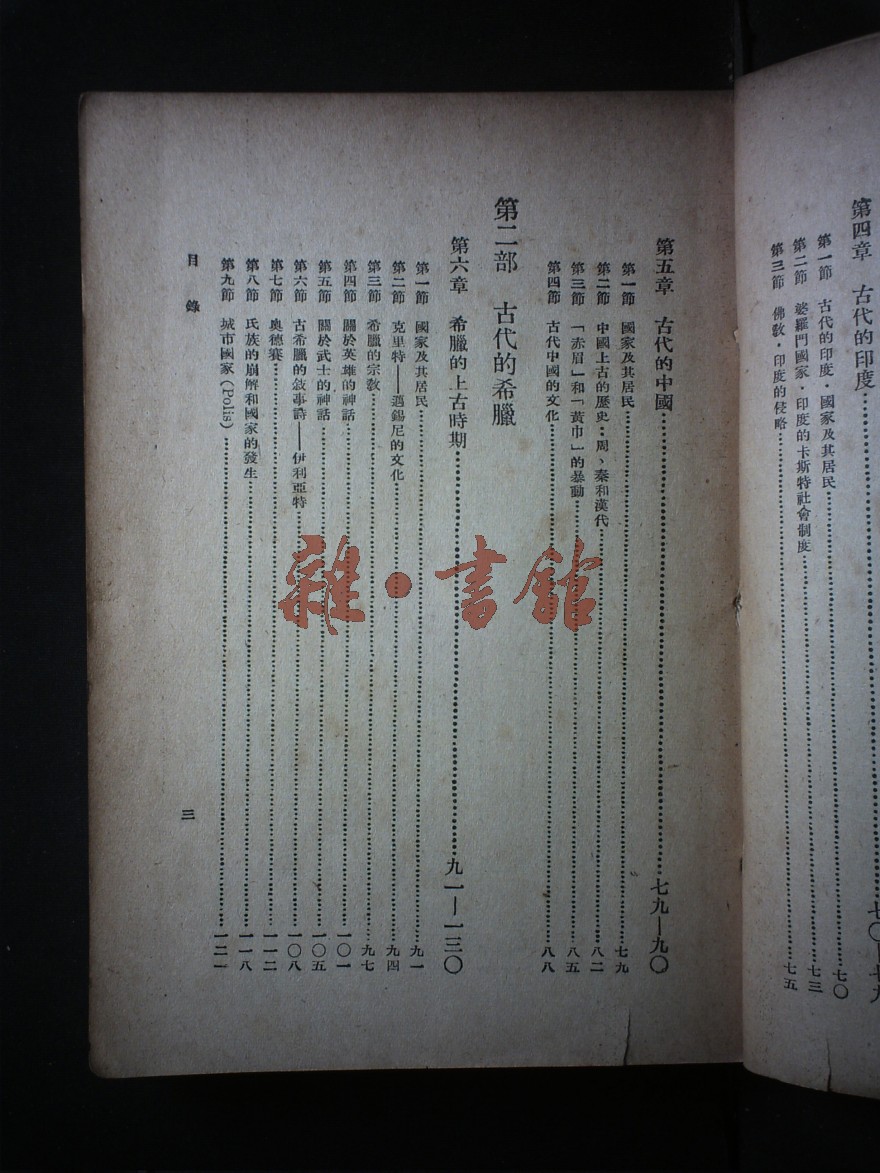 第四章　古代的印度……七〇—七九
第一節　古代的印度·國家及其居民……七〇
第二節　婆羅門國家·印度的卡斯特社會制度……七三
第三節　佛敎·印度的侵略……七五
第五章　古代的中國……七九—九〇
第一節　國家及其居民……七九
第二節　中國上古的歷史：周、秦和漢代……八二
第三節　「赤眉」和「黃巾」的暴動……八五
第四節　古代中國的文化……八八
第二部　古代的希臘
第六章　希臘的上古時期……九一—一三〇
第一節　國家及其居民……九一
第二節　克里特——邁錫尼的文化……九四
第三節　希臘的宗敎……九七
第四節　關於英雄的神話……一〇一
第五節　關於武士的神話……一〇五
第六節　古希臘的敍事詩——伊利亞特……一〇八
第七節　奧德賽……一一二
第八節　氏族的崩解和國家的發生……一一八
第九節　城市國家(Polis)……一二一
目錄
三
雜·書館